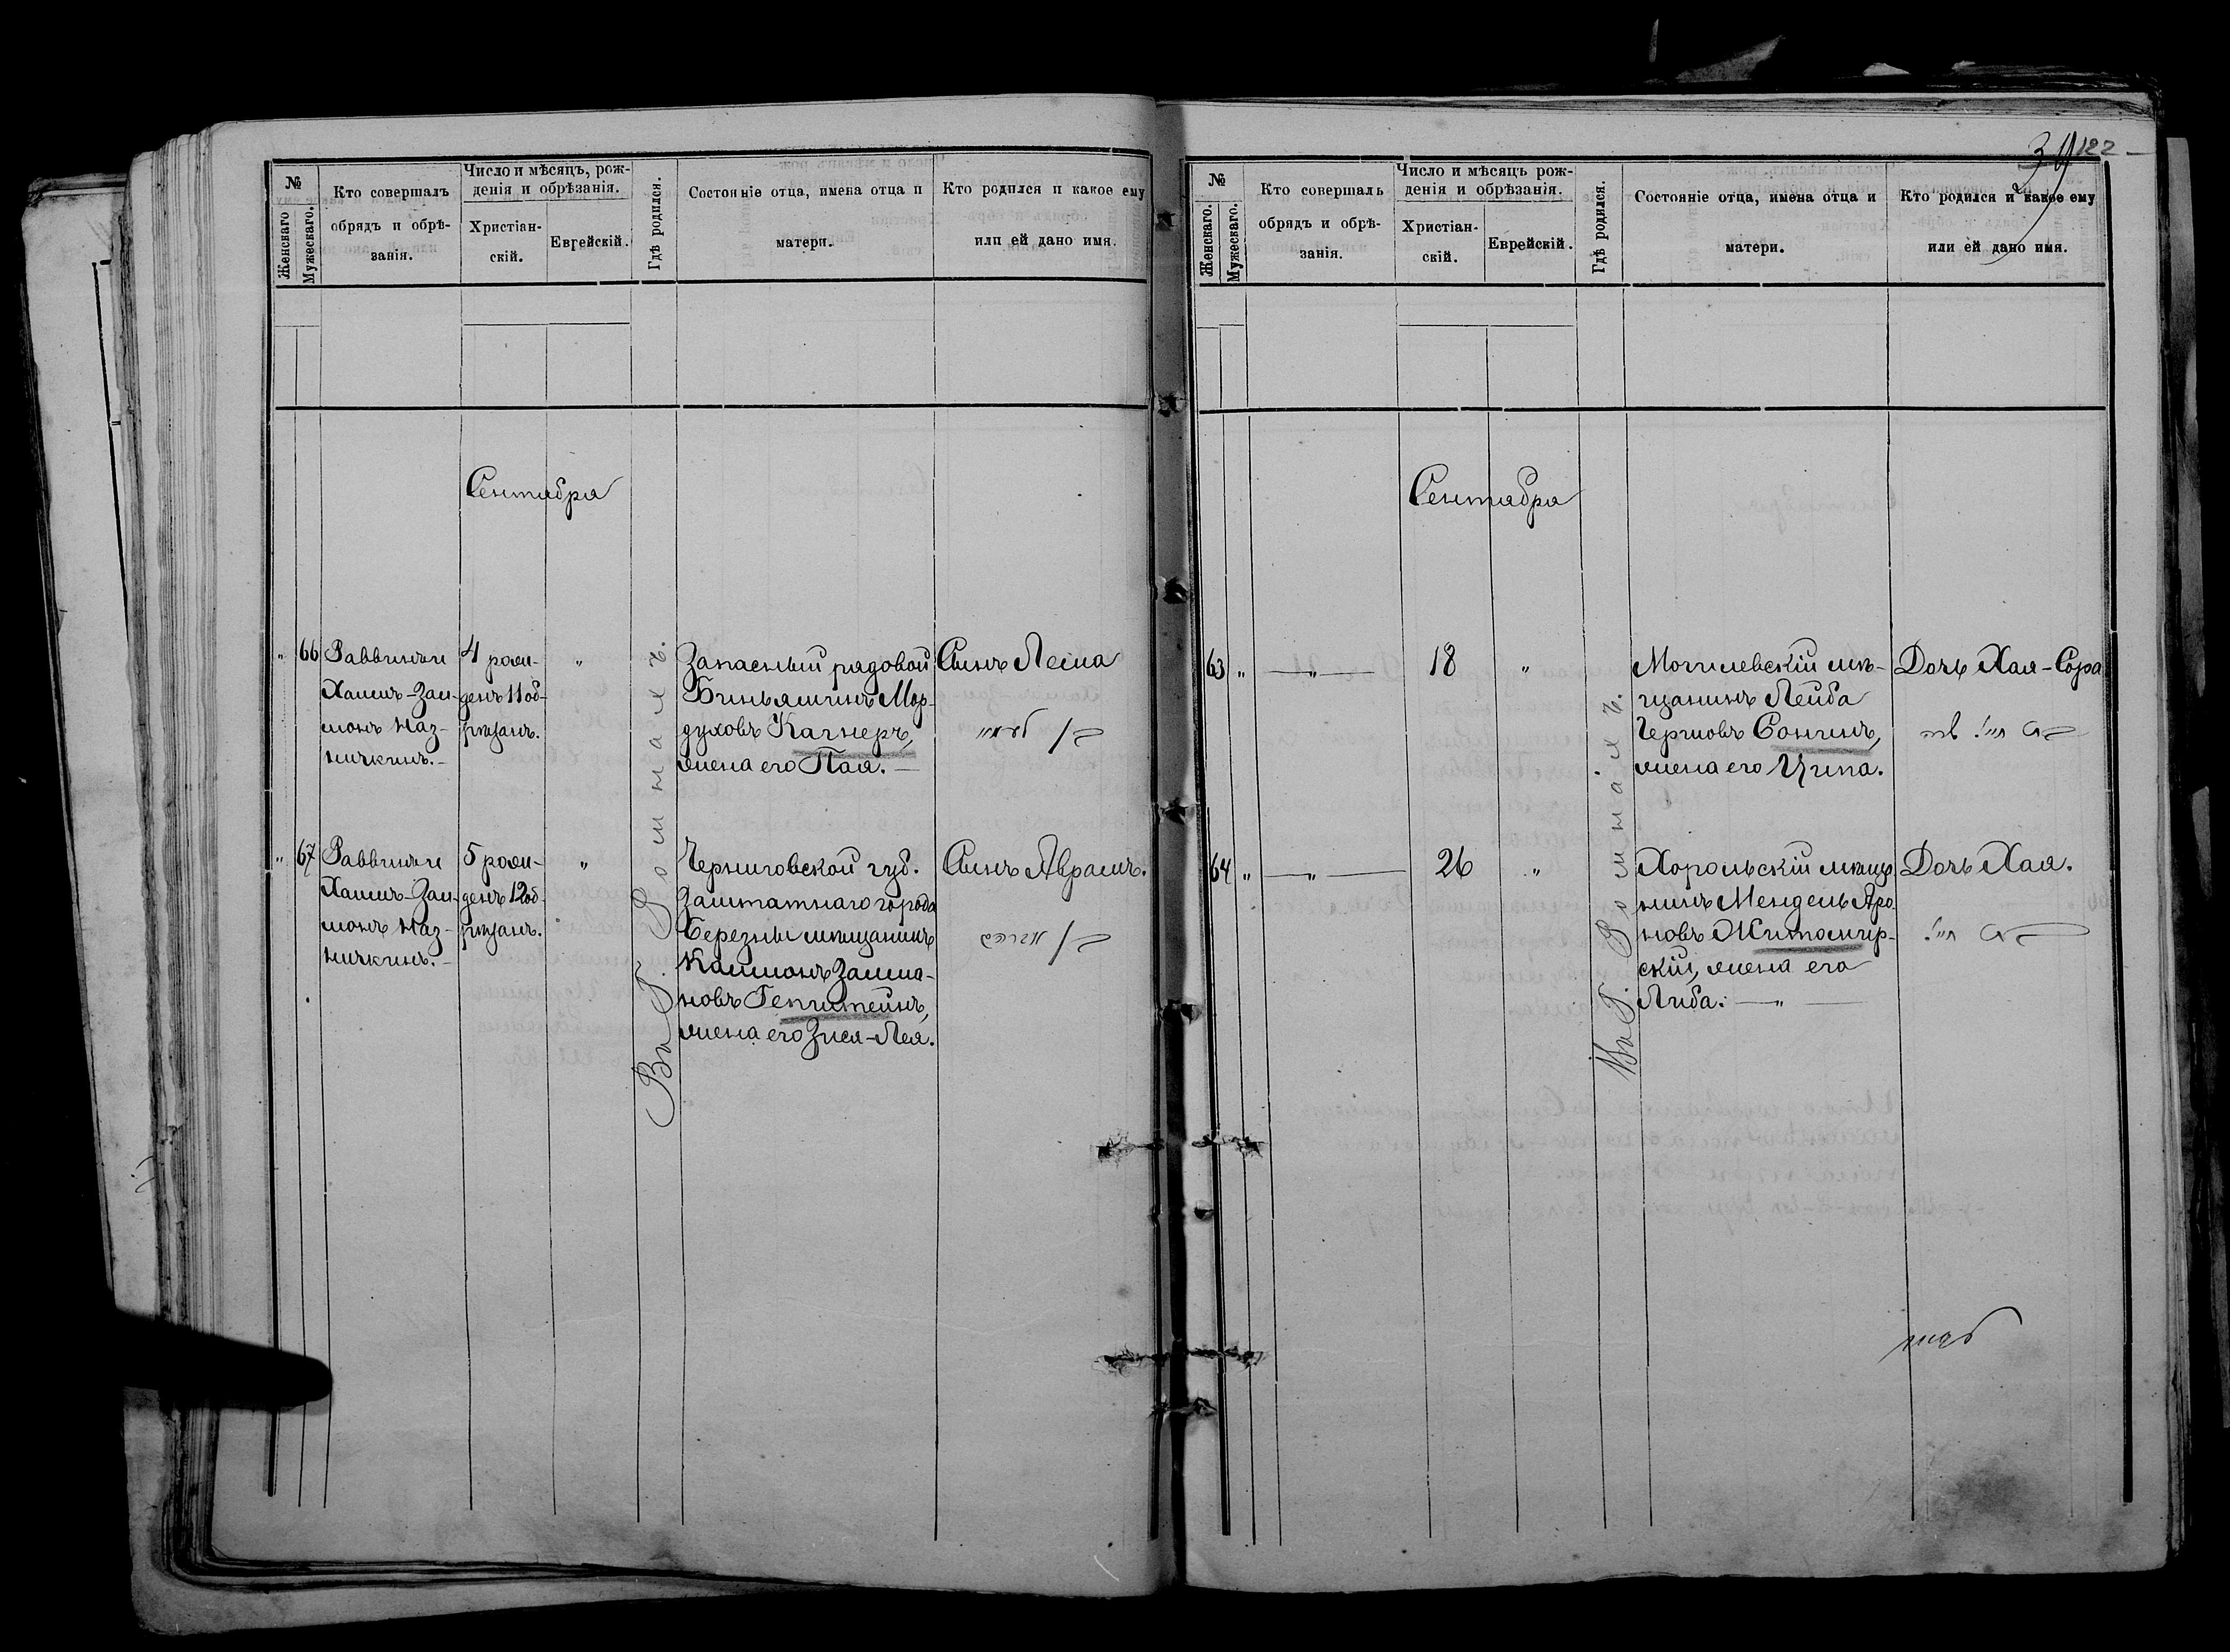 122
№
Женскаго.
Мужескаго.
Кто совершалъ
обрядъ и обрѣ-
занія.
Число и мѣсяцъ, рож-
денія и обрѣзанія.
Христіан-
скій.
Еврейскій.
Гдѣ родился.
Состояніе отца, имена отца и
матери.
Кто родился и какое ему
или ей дано имя.
Сентября
" 66
Раввинъ
Хаимъ-Зал-
монъ Наз-
4 рож-
денъ 11 об-
рѣзанъ.
"
Въ г. Ромнахъ.
Запасный рядовой
Биньяминъ Мор-
духовъ Кагнеръ,
жена его Пая.
Сынъ Лейма
" 67
Раввинъ
Хаимъ-Зал-
монъ Наз-
5 рож-
денъ 12 об-
рѣзанъ.
"
Черниговской губ.
Заштатнаго города
Березны мѣщанинъ
Калмонъ Залма-
новъ Гепштейнъ,
жена его Зися-Лея.
Сынъ Аврамъ.
№
Женскаго.
Мужескаго.
Кто совершалъ
обрядъ и обрѣ-
занія.
Число и мѣсяцъ рож-
денія и обрѣзанія.
Христіан-
скій.
Еврейскій.
Гдѣ родился.
Состояніе отца, имена отца и
матери.
Кто родился и какое ему
или ей дано имя.
Сентября
63 "
— " —
18
"
Въ г. Ромнахъ.
Могилевскій мѣ-
щанинъ Лейба
Сонинъ,
жена его Ципа.
Дочь Хая-Сора
64 "
— " —
26
"
Хорольскій мѣща
нинъ Мендель Аро-
новъ Житомир-
скій, жена его
Либа. — " —
Дочь Хая.